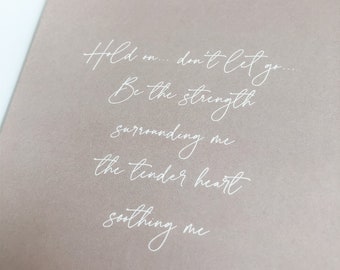 Hold on... don't let go...
Be the strength
surrounding me
the tender heart
soothing me